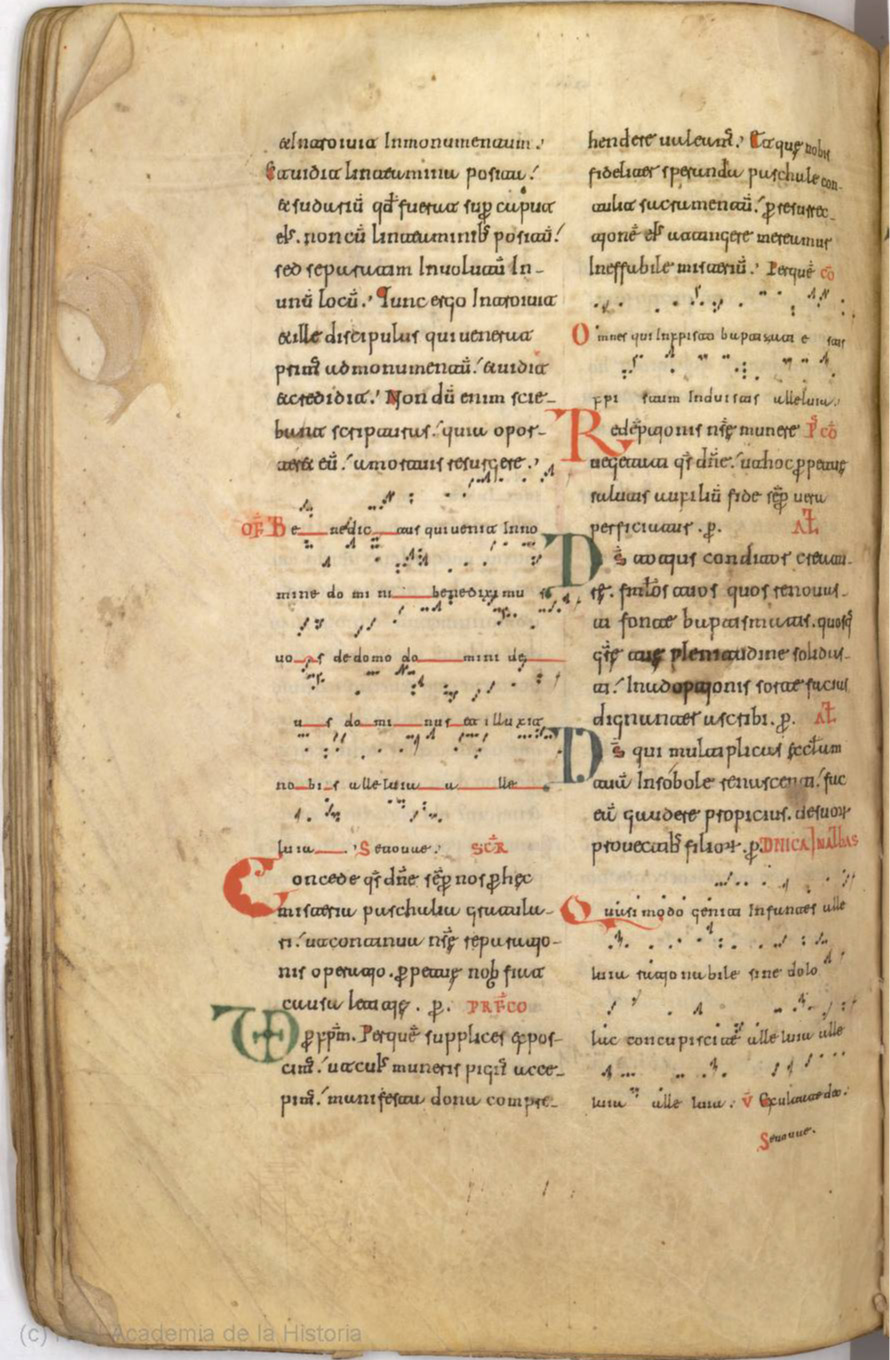 &Introiuit Inmonumentum.
Et uidit linteamina posita.
& sudariū qd̄ fuerat sup̄ caput
eiꝰ. non cū linteaminibꝰ positū.
sed separatim Inuolutū In-
unū locū. Tunc ergo Introiuit
&ille discipulus qui uenerat
primꝰ ad monumentū. & uidit
&credidit. Non dū enim scie-
bant scripturas. quia opor-
ter& eū. a mortuis resurgere.
OF̄ Be nedic tus qui uenit Inno
mine do mi ni benediximu s
uo bis de domo do mini de
us do mi nus et illuxit
no bi s alleluia a lle
luia. Seuouae. SCR̄
Concede qs̄ dn̄e sēp nos p̱ hęc
misteria paschalia gratula-
ri. ut continua nr̄ę reparatio-
nis operatio. p̱petuę nob̄ fiat
causa letitię. p̱. PRF̄CO
VD p̱ xp̄m. Perquē supplices expos-
cimꝰ. ut cuiꝰ muneris pignꝰ acce-
pimꝰ. manifesta dona compre-
hendere ualeamꝰ. Et quę nobis
fideliter speranda paschale con-
tulit sacramentū. p̱ resurrec-
tionē eiꝰ attingere mereamur
Ineffabile misteriū. Perquē cō
Omnes qui Inxp̄isto baptizati e stis
xp̄i stum Induistis alleluia.
Redēptionis nr̄ę munere P̄ cō
uegetati qs̄ dn̄e. ut hoc p̱petuę
salutis auxiliū fide sēp̱ uera
perficiatur. p̱. AL̄
Ds̄ totius conditor creatu-
rę. famlōs tuos quos renouas-
ti fonte baptismatis. quosq̄
gr̄ę tuę plenitudine solidas-
ti. Inadoptionis sorte facias
dignanter ascribi. p̱. AL̄
Ds̄ qui multiplicas ecc̄lam
tuā Insobole renascenti. fac
eā gaudere propicius. desuorꝝ
prouectibꝰ filiorꝝ. p̱. DNICA INALBAS
Quasi modo geniti Infantes alle
luia rationabile sine dolo
lac concupiscite alle luia alle
luia alle luia. V̄ Exultate deo.
Seuouae.